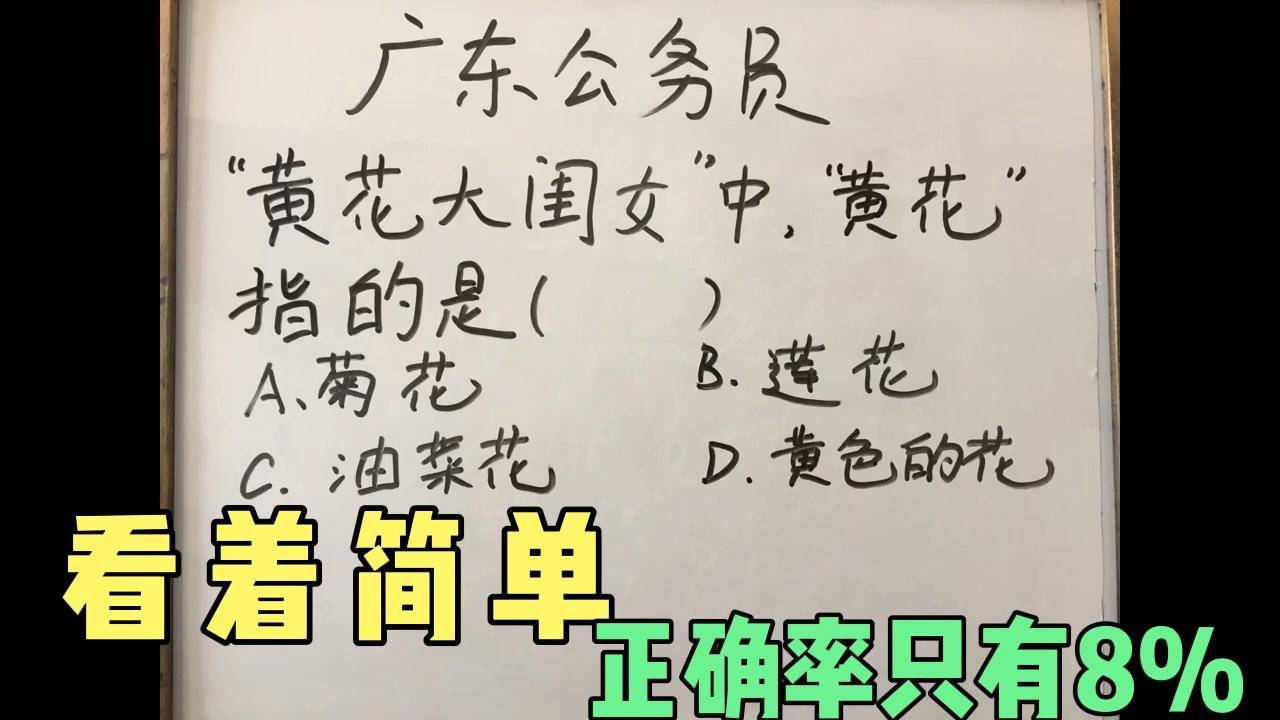 广东公务员
“黄花大闺女”中，“黄花”
指的是(　　)
A、菊花　B. 莲花
C. 油菜花　D. 黄色的花
看着简单
正确率只有8%